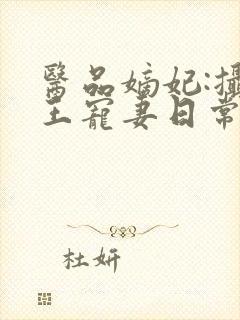 醫品嫡妃:攝
王寵妻日常
杜妍